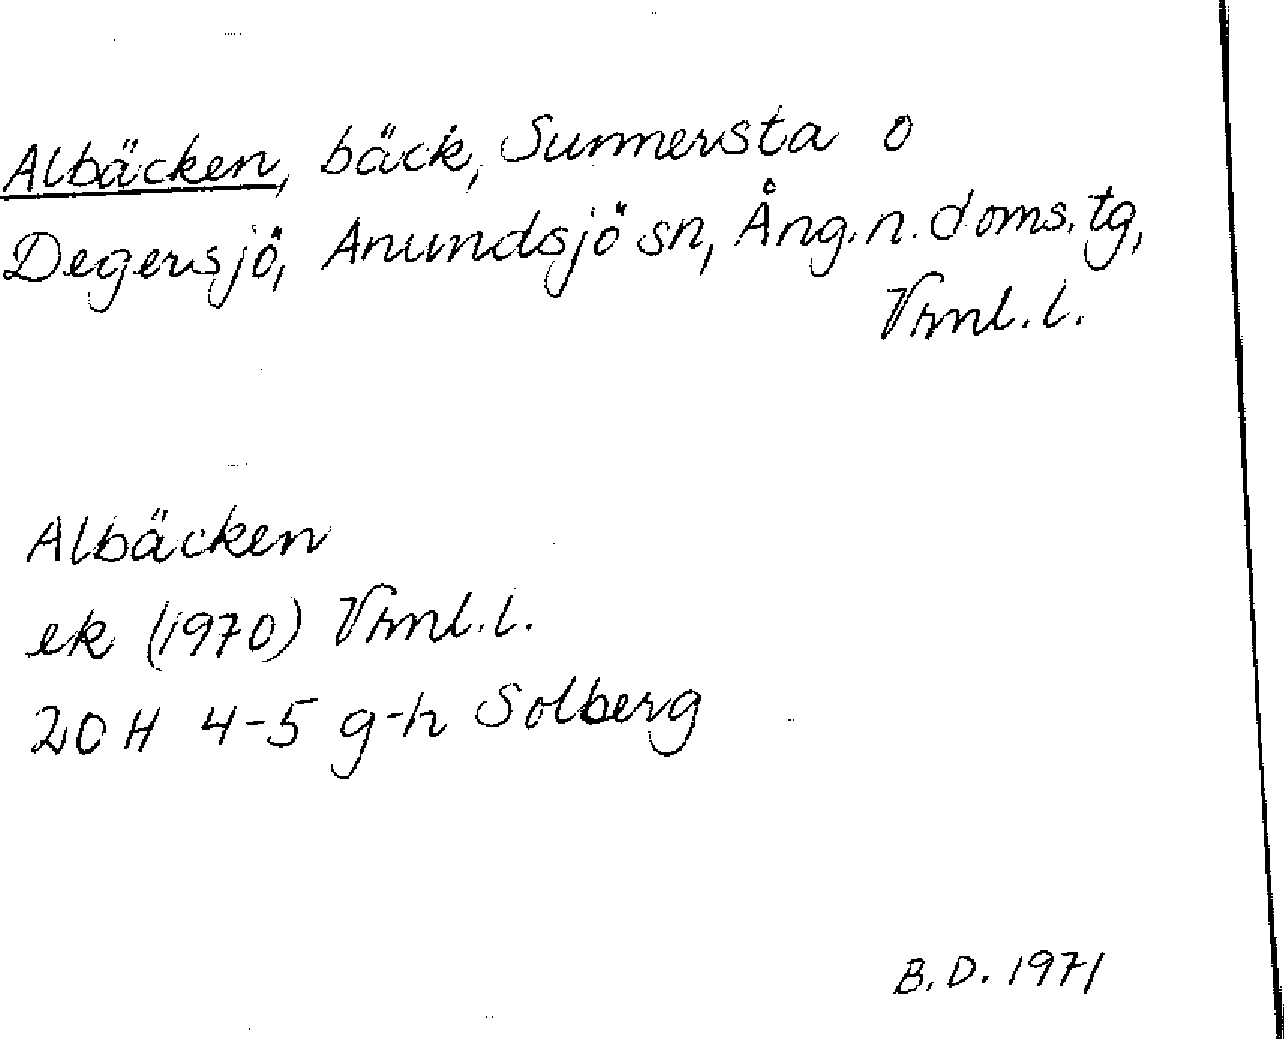 Albäcken, bäck, Sunnersta o
Degersjö, Anundsjö sn, Ång.n.doms.tg,
Vrnl.l.
Albäcken
ek (1970) Vrnl.l.
20 H 4-5 g-h Solberg
B.D. 1971